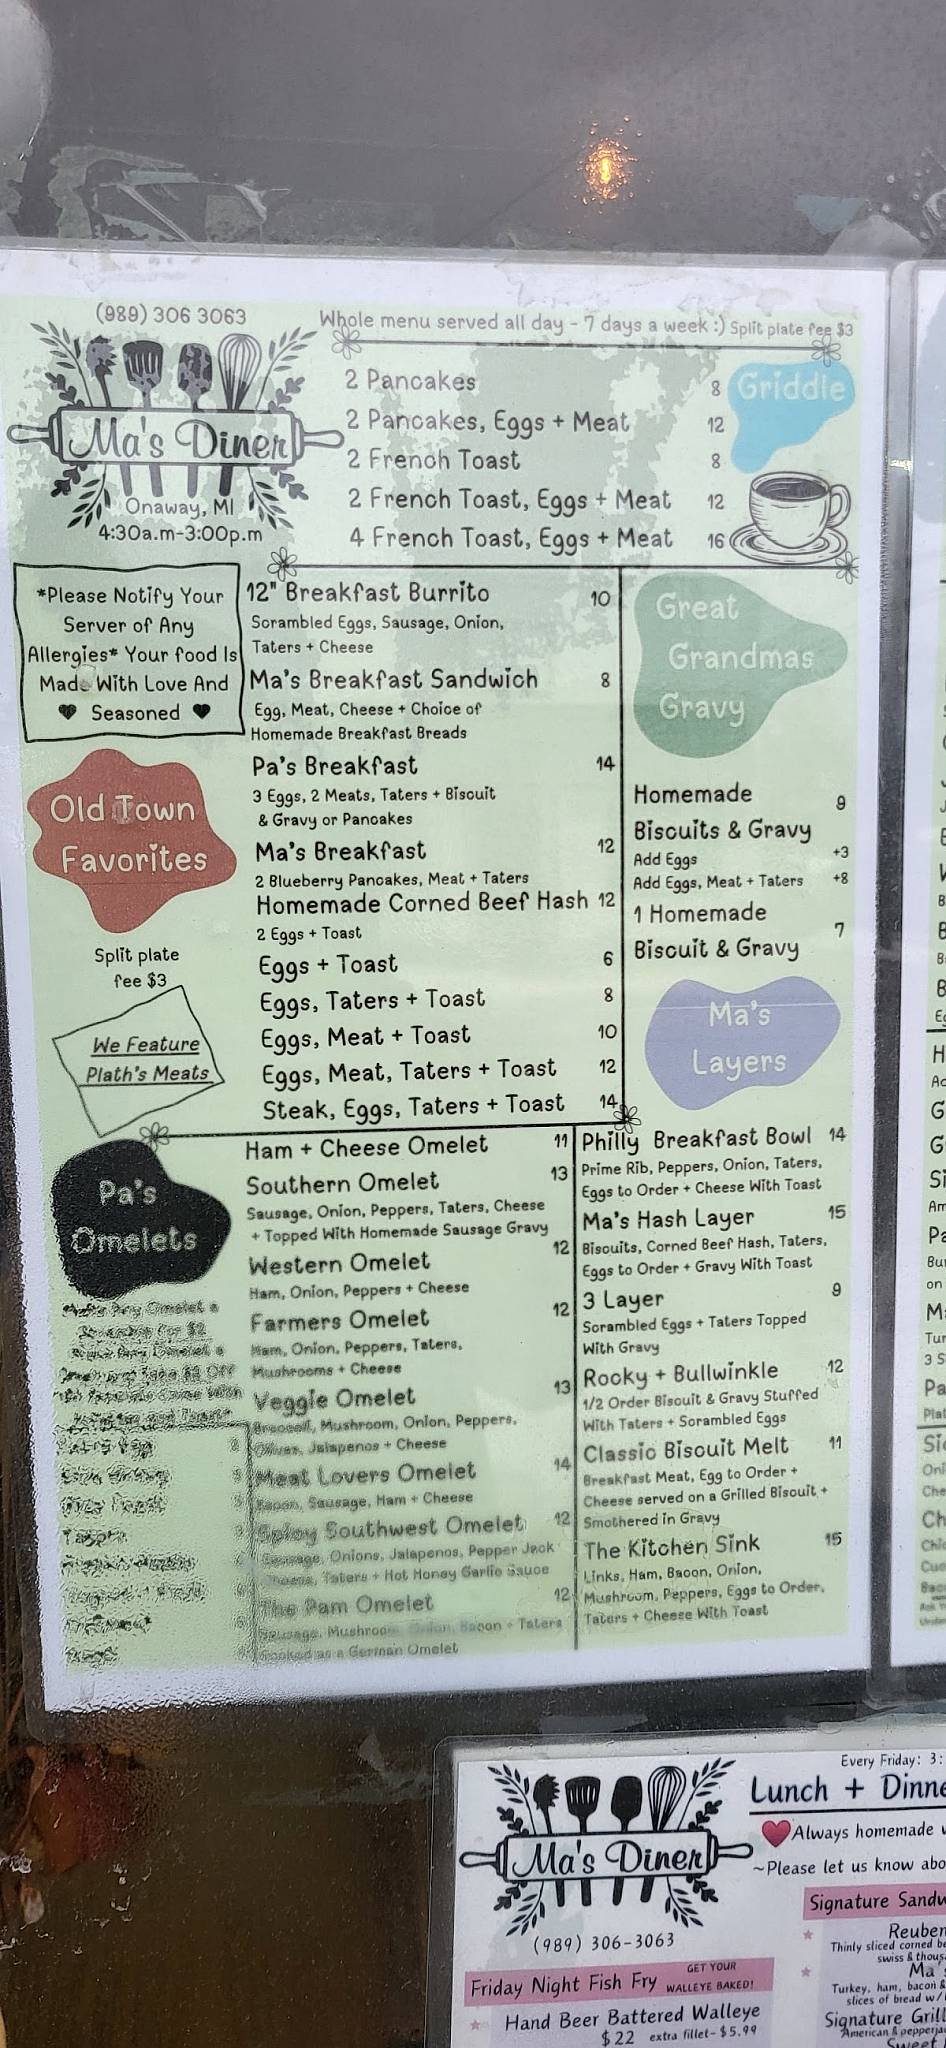 (989) 306 3063
Whole menu served all day - 7 days a week :) Split plate fee $3
Ma's Diner
Onaway, MI
4:30a.m-3:00p.m
Griddle
2 Pancakes 8
2 Pancakes, Eggs + Meat 12
2 French Toast 8
2 French Toast, Eggs + Meat 12
4 French Toast, Eggs + Meat 16
*Please Notify Your
Server of Any
Allergies* Your food Is
Made With Love And
Seasoned
Old Town
Favorites
Split plate
fee $3
We Feature
Plath's Meats
12" Breakfast Burrito 10
Scrambled Eggs, Sausage, Onion,
Taters + Cheese
Ma's Breakfast Sandwich 8
Egg, Meat, Cheese + Choice of
Homemade Breakfast Breads
Pa's Breakfast 14
3 Eggs, 2 Meats, Taters + Biscuit
& Gravy or Pancakes
Ma's Breakfast 12
2 Blueberry Pancakes, Meat + Taters
Homemade Corned Beef Hash 12
2 Eggs + Toast
Eggs + Toast 6
Eggs, Taters + Toast 8
Eggs, Meat + Toast 10
Eggs, Meat, Taters + Toast 12
Steak, Eggs, Taters + Toast 14
Great
Grandmas
Gravy
Homemade
Biscuits & Gravy 9
Add Eggs +3
Add Eggs, Meat + Taters +8
1 Homemade
Biscuit & Gravy 7
Ma's
Layers
Philly Breakfast Bowl 14
Prime Rib, Peppers, Onion, Taters,
Eggs to Order + Cheese With Toast
Ma's Hash Layer 15
Biscuits, Corned Beef Hash, Taters,
Eggs to Order + Gravy With Toast
3 Layer 9
Scrambled Eggs + Taters Topped
With Gravy
Rocky + Bullwinkle 12
1/2 Order Biscuit & Gravy Stuffed
With Taters + Scrambled Eggs
Classic Biscuit Melt 11
Breakfast Meat, Egg to Order +
Cheese served on a Grilled Biscuit +
Smothered in Gravy
The Kitchen Sink 15
Links, Ham, Bacon, Onion,
Mushroom, Peppers, Eggs to Order,
Taters + Cheese With Toast
Pa's
Omelets
Ham + Cheese Omelet 11
Southern Omelet 13
Sausage, Onion, Peppers, Taters, Cheese
+ Topped With Homemade Sausage Gravy
Western Omelet 12
Ham, Onion, Peppers + Cheese
Farmers Omelet 12
Ham, Onion, Peppers, Taters,
Mushrooms + Cheese
Veggie Omelet 13
Broccoli, Mushroom, Onion, Peppers,
Olives, Jalapenos + Cheese
Meat Lovers Omelet 14
Bacon, Sausage, Ham + Cheese
Spicy Southwest Omelet 12
Sausage, Onions, Jalapenos, Pepper Jack
Cheese, Taters + Hot Honey Garlic Sauce
The Pam Omelet 12
Sausage, Mushroom, Onion, Bacon + Taters
Cooked as a German Omelet
Ma's Diner
(989) 306-3063
Friday Night Fish Fry GET YOUR
WALLEYE BAKED!
Hand Beer Battered Walleye
$22 extra fillet- $5.99
Every Friday: 3:
Lunch + Dinne
Always homemade w
~Please let us know abo
Signature Sandw
Reuben
Thinly sliced corned be
swiss & thous
Ma's
Turkey, ham, bacon &
slices of bread w/
Signature Grill
American & pepperja
Sweet